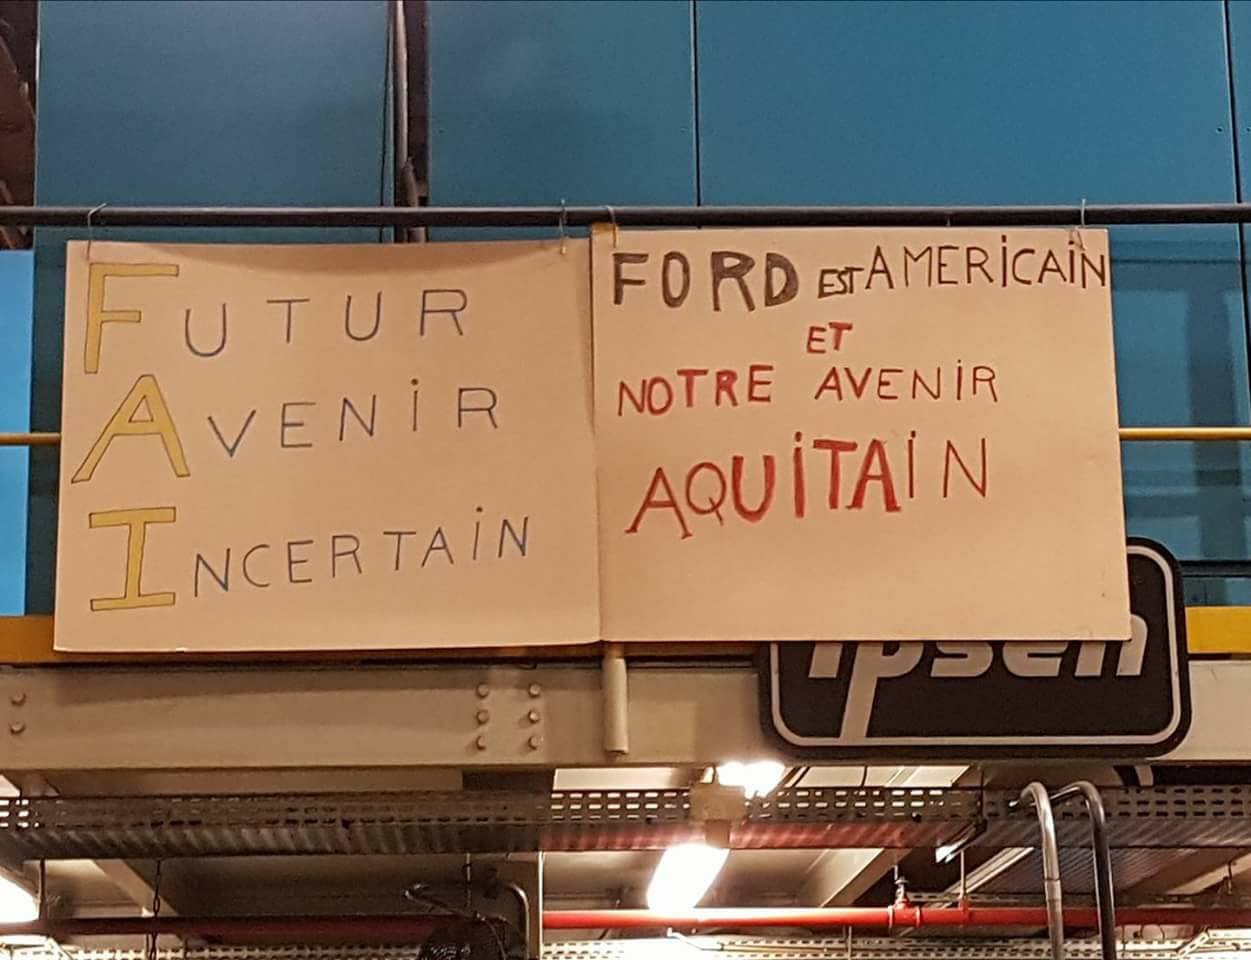 FUTUR
AVENIR
INCERTAIN
FORD EST AMERICAIN
ET
NOTRE AVENIR
AQUITAIN
ipsen